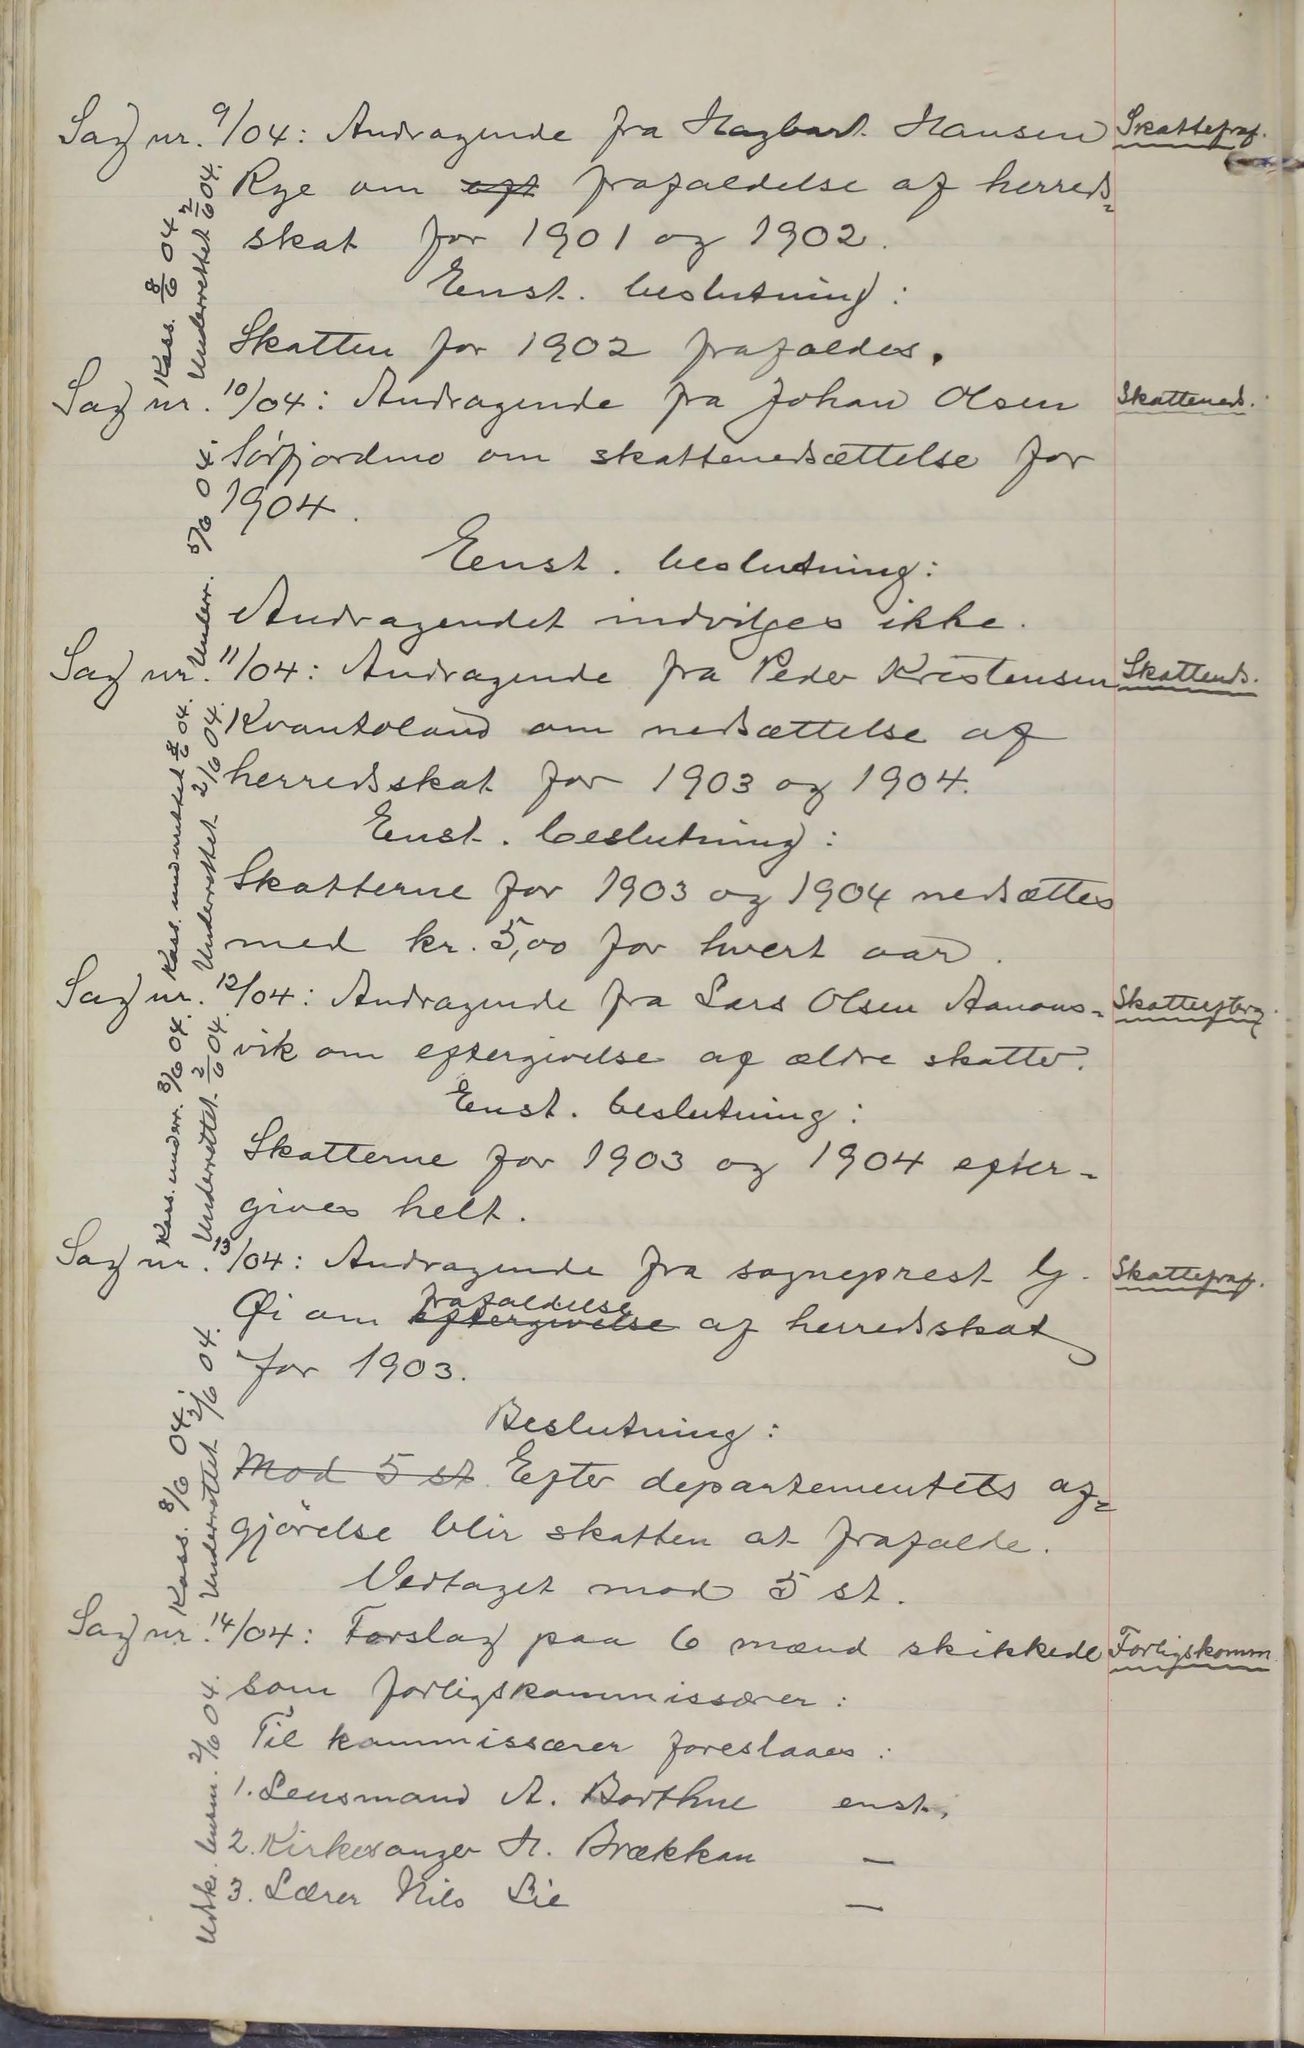 Sag nr. 9/04: Andragende fra Hagbart Hansen
Skattefraf.
Rye om eft frafaldelse af herreds-
skat for 1901 og 1902.
Enst. beslutning:
Skatten for 1902 frafaldes.
Kass. 8/6 04
Underrettet 2/6 04.
Sag nr. 10/04: Andragende fra Johan Olsen
Skatteneds.
Sørfjordmo om skattenedsættelse for
1904.
Enst. beslutning:
Andragendet indvilges ikke.
Underr. 5/6 04
Sag nr. 11/04: Andragende fra Peder Kristensen
Skatteneds.
Kvantoland om nedsættelse af
herredsskat for 1903 og 1904.
Enst. beslutning:
Skatterne for 1903 og 1904 nedsættes
med kr. 5,00 for hvert aar.
Kass. underrettet 8/6 04.
Underrettet 2/6 04.
Sag nr. 12/04: Andragende fra Lars Olsen Aanons-
vik om eftergivelse af ældre skatter.
Enst. beslutning:
Skatterne for 1903 og 1904 efter-
gives helt.
Kass. underr. 8/6 04.
Underrettet 2/6 04.
Sag nr. 13/04: Andragende fra sogneprest G.
Skattefraf.
Øi om eftergivelse frafaldelse af herredsskat
for 1903.
Beslutning:
Mod 5 st. Efter departementets af-
gjørelse blir skatten at frafalde.
Vedtaget mod 5 st.
Kass. 8/6 04.
Underrettet 2/6 04.
Sag nr. 14/04: Forslag paa 6 mænd skikkede
Forligskomm.
som forligskommissærer:
Til kommissærer foreslaaes:
1. Lensmand A. Borthne enst.
2. Kirkesanger H. Brækkan —
3. Lærer Nils Lie —
Udskr. lensm. 2/6 04.